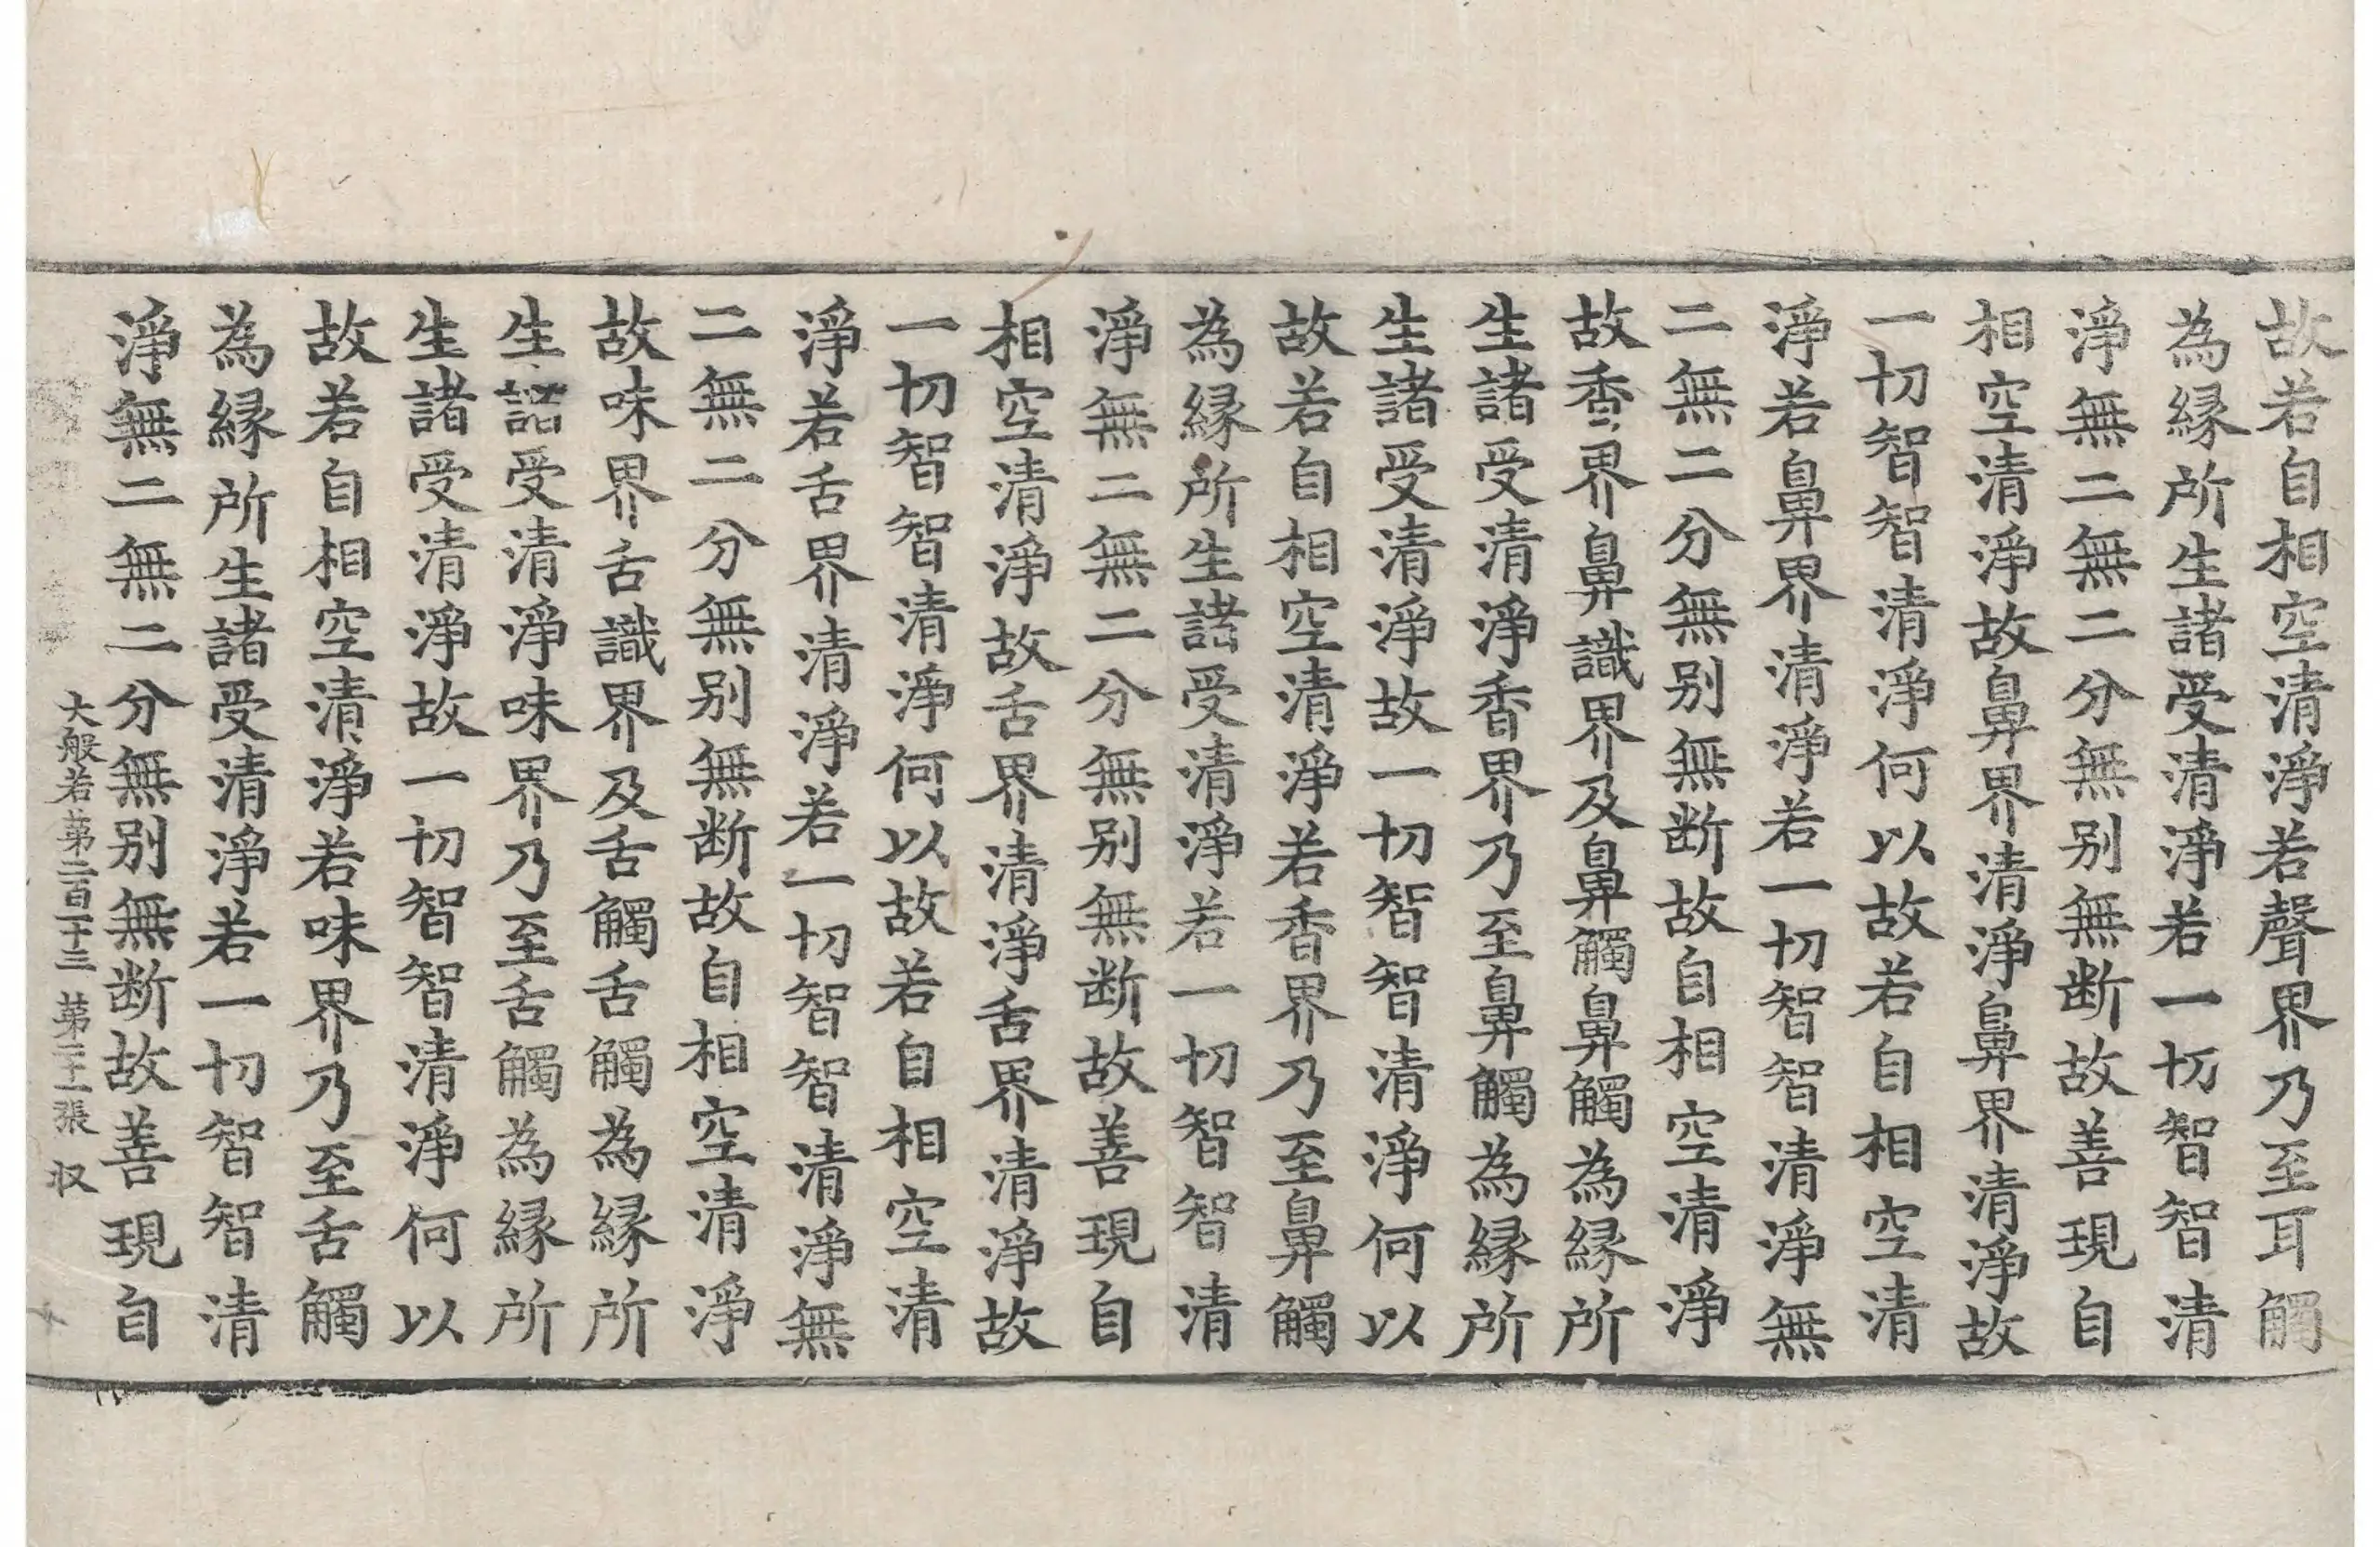 故若自相空清淨若聲界乃至耳觸
為縁所生諸受清淨若一切智智清
淨無二無二分無别無断故善現自
相空清淨故鼻界清淨鼻界清淨故
一切智智清淨何以故若自相空清
淨若鼻界清淨若一切智智清淨無
二無二分無别無断故自相空清淨
故香界鼻識界及鼻觸鼻觸為縁所
生諸受清淨香界乃至鼻觸為縁所
生諸受清淨故一切智智清淨何以
故若自相空清淨若香界乃至鼻觸
為縁所生諸受清淨若一切智智清
淨無二無二分無别無断故善現自
相空清淨故舌界清淨舌界清淨故
一切智智清淨何以故若自相空清
淨若舌界清淨若一切智智清淨無
二無二分無别無断故自相空清淨
故味界舌識界及舌觸舌觸為縁所
生諸受清淨味界乃至舌觸為縁所
生諸受清淨故一切智智清淨何以
故若自相空清淨若味界乃至舌觸
為縁所生諸受清淨若一切智智清
淨無二無二分無别無断故善現自
大般若第二百二十三 第二十一張 収